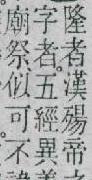 隆者漢殤帝
字者五經異
廟祭似可不